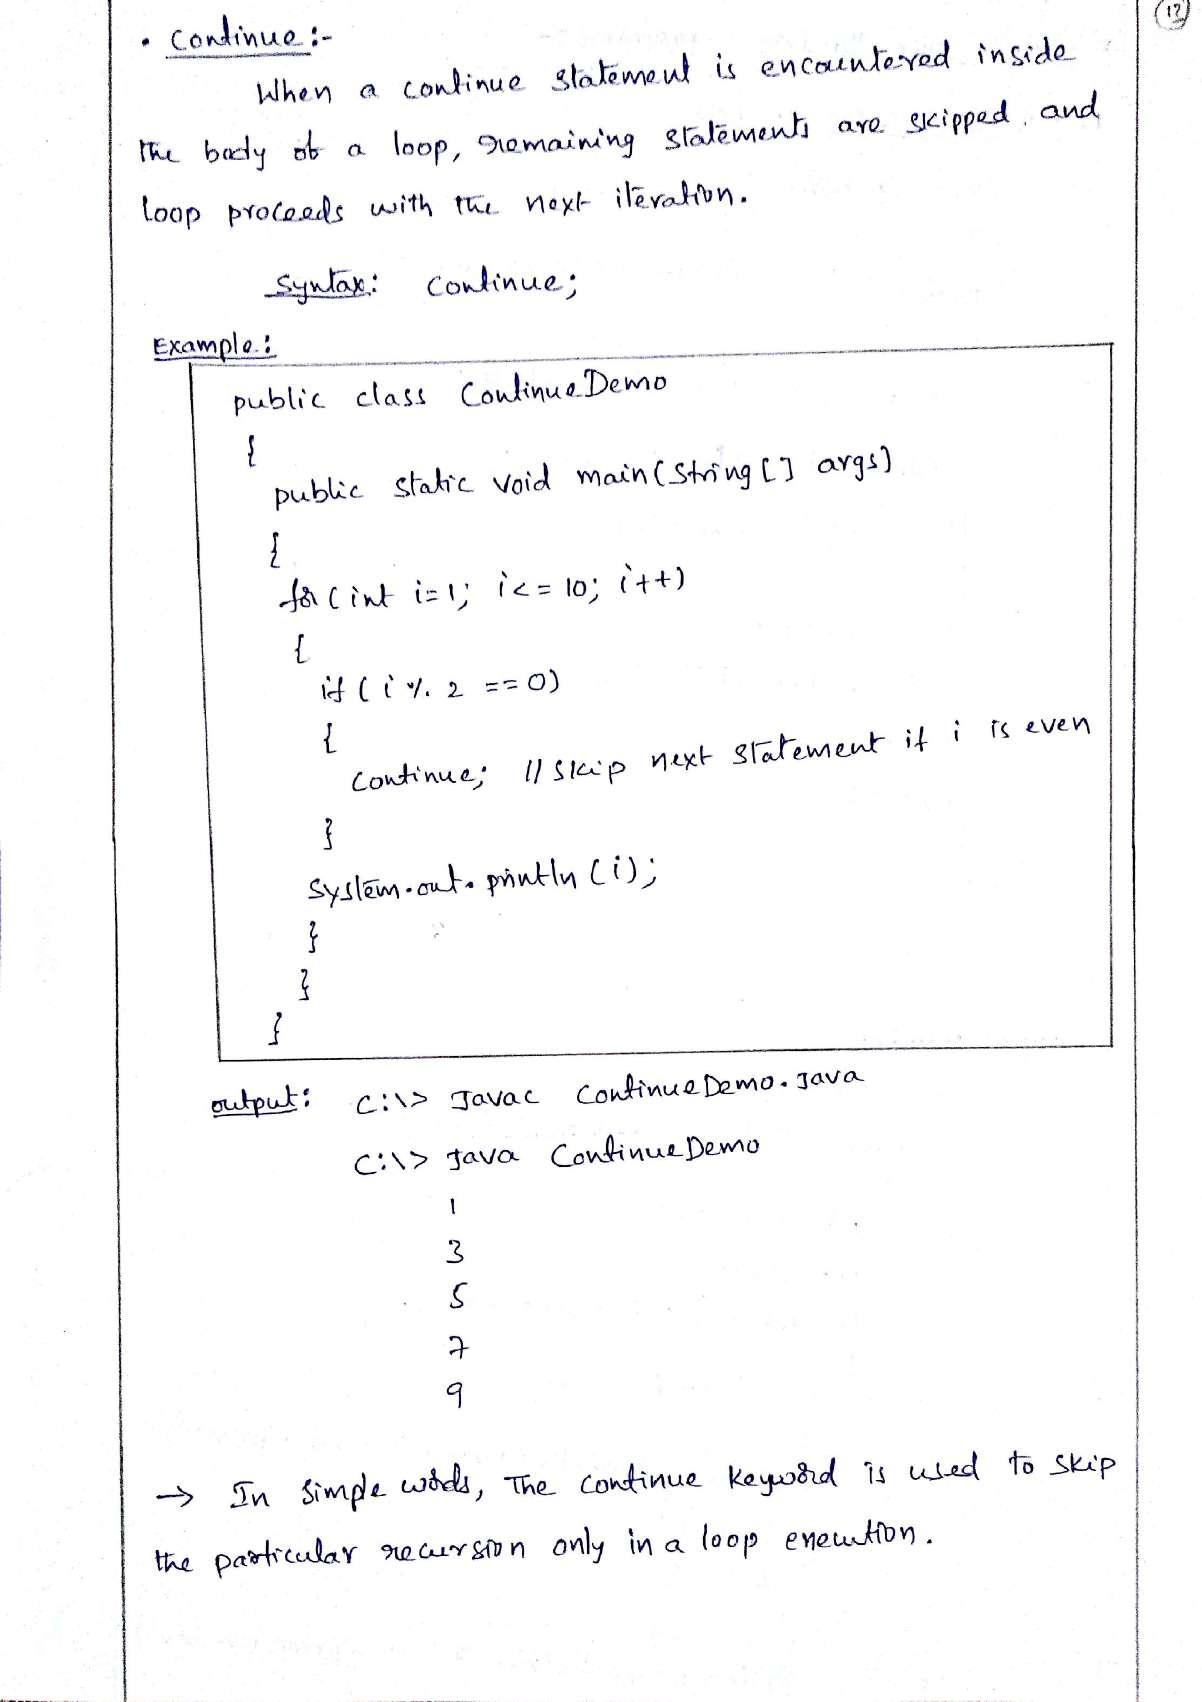 17
• Continue :-
When a continue statement is encountered inside
the body of a loop, remaining statements are skipped and
loop proceeds with the next iteration.
Syntax: continue;
Example:
public class ContinueDemo
{
public static void main(String [] args)
{
for (int i=1; i<=10; i++)
{
if (i % 2 == 0)
{
continue; // skip next statement if i is even
}
System.out.println (i);
}
}
}
output: C:\> Javac ContinueDemo.Java
C:\> Java ContinueDemo
1
3
5
7
9
→ In simple words, The continue keyword is used to skip
the particular recursion only in a loop execution.